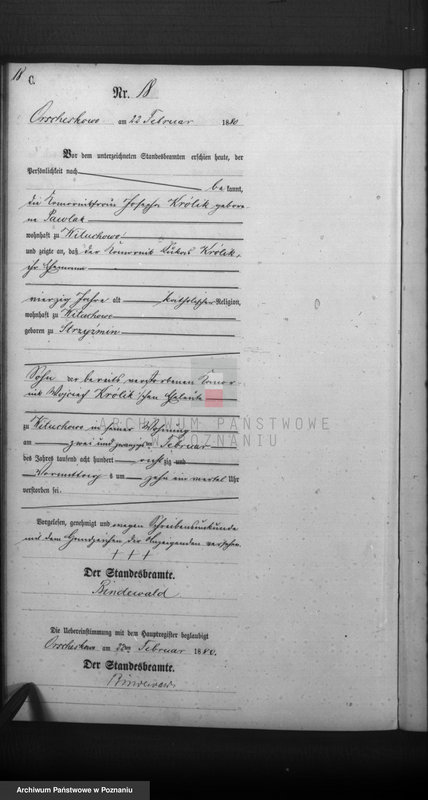 18
C.
Nr. 18
am 22 Februar 1880
Vor dem unterzeichneten Standesbeamten erschien heute, der
Persönlichkeit nach
be kannt,
die Komornikfrau Josepha Królik gebore
ne Pawlak
wohnhaft zu Wituchowo
und zeigte an, daß der Komornik Lukas Królik,
ihr Ehemann
vierzig Jahre alt katholischer Religion,
wohnhaft zu Wituchowo
geboren zu Strzyżmin
Sohn der bereits verstorbenen Komor
nik Wojcief Królik'schen Eheleute
ARCHIWUM PAŃSTWOWE
W POZNANIU
zu Wituchowo in seiner Wohnung
am zwei und zwanzigsten Februar
des Jahres tausend acht hundert achtzig und
Vormittags um zehn ein viertel Uhr
verstorben sei.
Vorgelesen, genehmigt und wegen Schreibensunkunde
mit dem Handzeichen der Anzeigenden versehen.
+ + +
Der Standesbeamte.
Bindewald
Die Uebereinstimmung mit dem Hauptregister beglaubigt
am 22ten Februar 1880.
Der Standesbeamte.
Bindewald
Archiwum Państwowe w Poznaniu